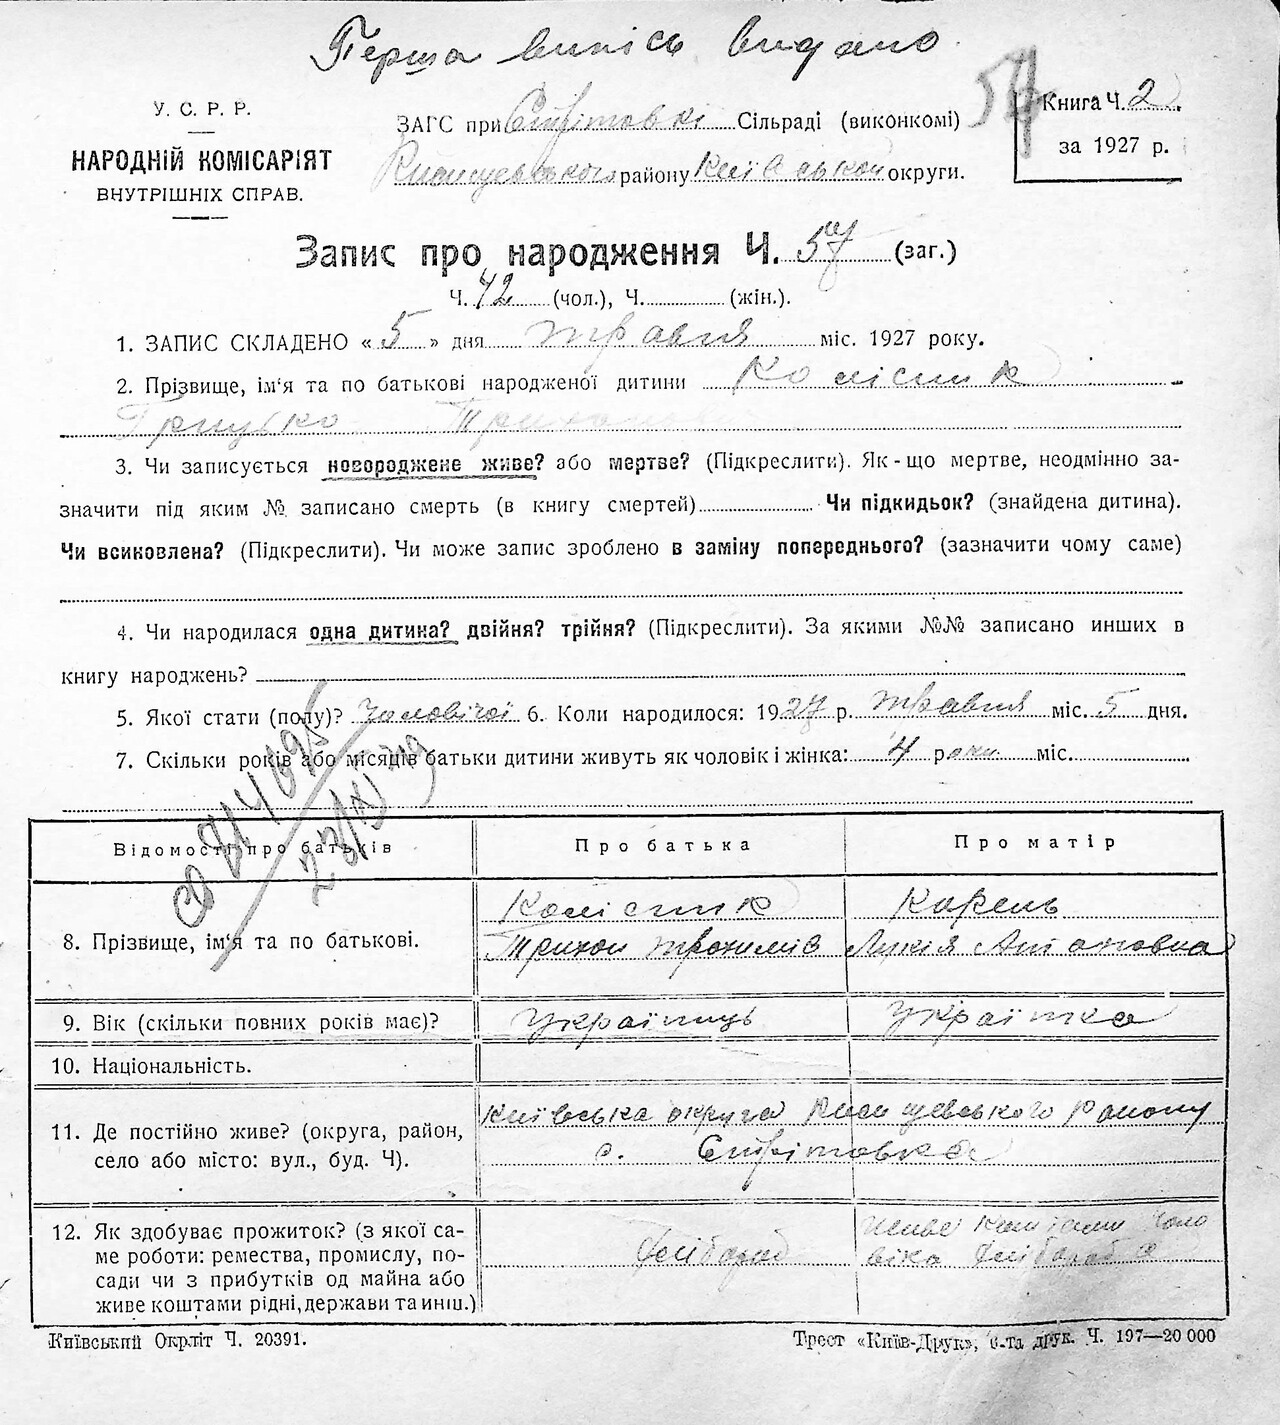 Перша випісь видано
У. С. Р. Р.
НАРОДНІЙ КОМІСАРІЯТ
ВНУТРІШНІХ СПРАВ.
ЗАГС при Сільраді (виконкомі)
району Київської округи.
Книга Ч. 2
за 1927 р.
Запис про народження Ч. 57 (заг.)
Ч. 42 (чол.), Ч. (жін.).
1. ЗАПИС СКЛАДЕНО « 5 » дня травня міс. 1927 року.
2. Прізвище, ім'я та по батькові народженої дитини Колісник
Грицько
3. Чи записується новороджене живе? або мертве? (Підкреслити). Як-що мертве, неодмінно за-
значити під яким № записано смерть (в книгу смертей) Чи підкидьок? (знайдена дитина).
Чи всиковлена? (Підкреслити). Чи може запис зроблено в заміну попереднього? (зазначити чому саме)
4. Чи народилася одна дитина? двійня? трійня? (Підкреслити). За якими №№ записано инших в
книгу народжень?
5. Якої стати (полу)? чоловічої 6. Коли народилося: 1927 р. травня міс. 5 дня.
7. Скільки років або місяців батьки дитини живуть як чоловік і жінка: 4 роки міс.
Відомості про батьків
Про батька
Про матір
8. Прізвище, ім'я та по батькові.
Колісник
Корень
Лукія Антоновна
9. Вік (скільки повних років має)?
Українець
Українка
10. Національність.
11. Де постійно живе? (округа, район,
село або місто: вул., буд. Ч).
Київська округа району
с.
12. Як здобуває прожиток? (з якої са-
ме роботи: ремества, промислу, по-
сади чи з прибутків од майна або
живе коштами рідні, держави та инш.)
хлібороб
живе коштами чоло
віка хлібороба
Київський Окрліт Ч. 20391.
Трест «Київ-Друк», 6-та друк. Ч. 197—20 000